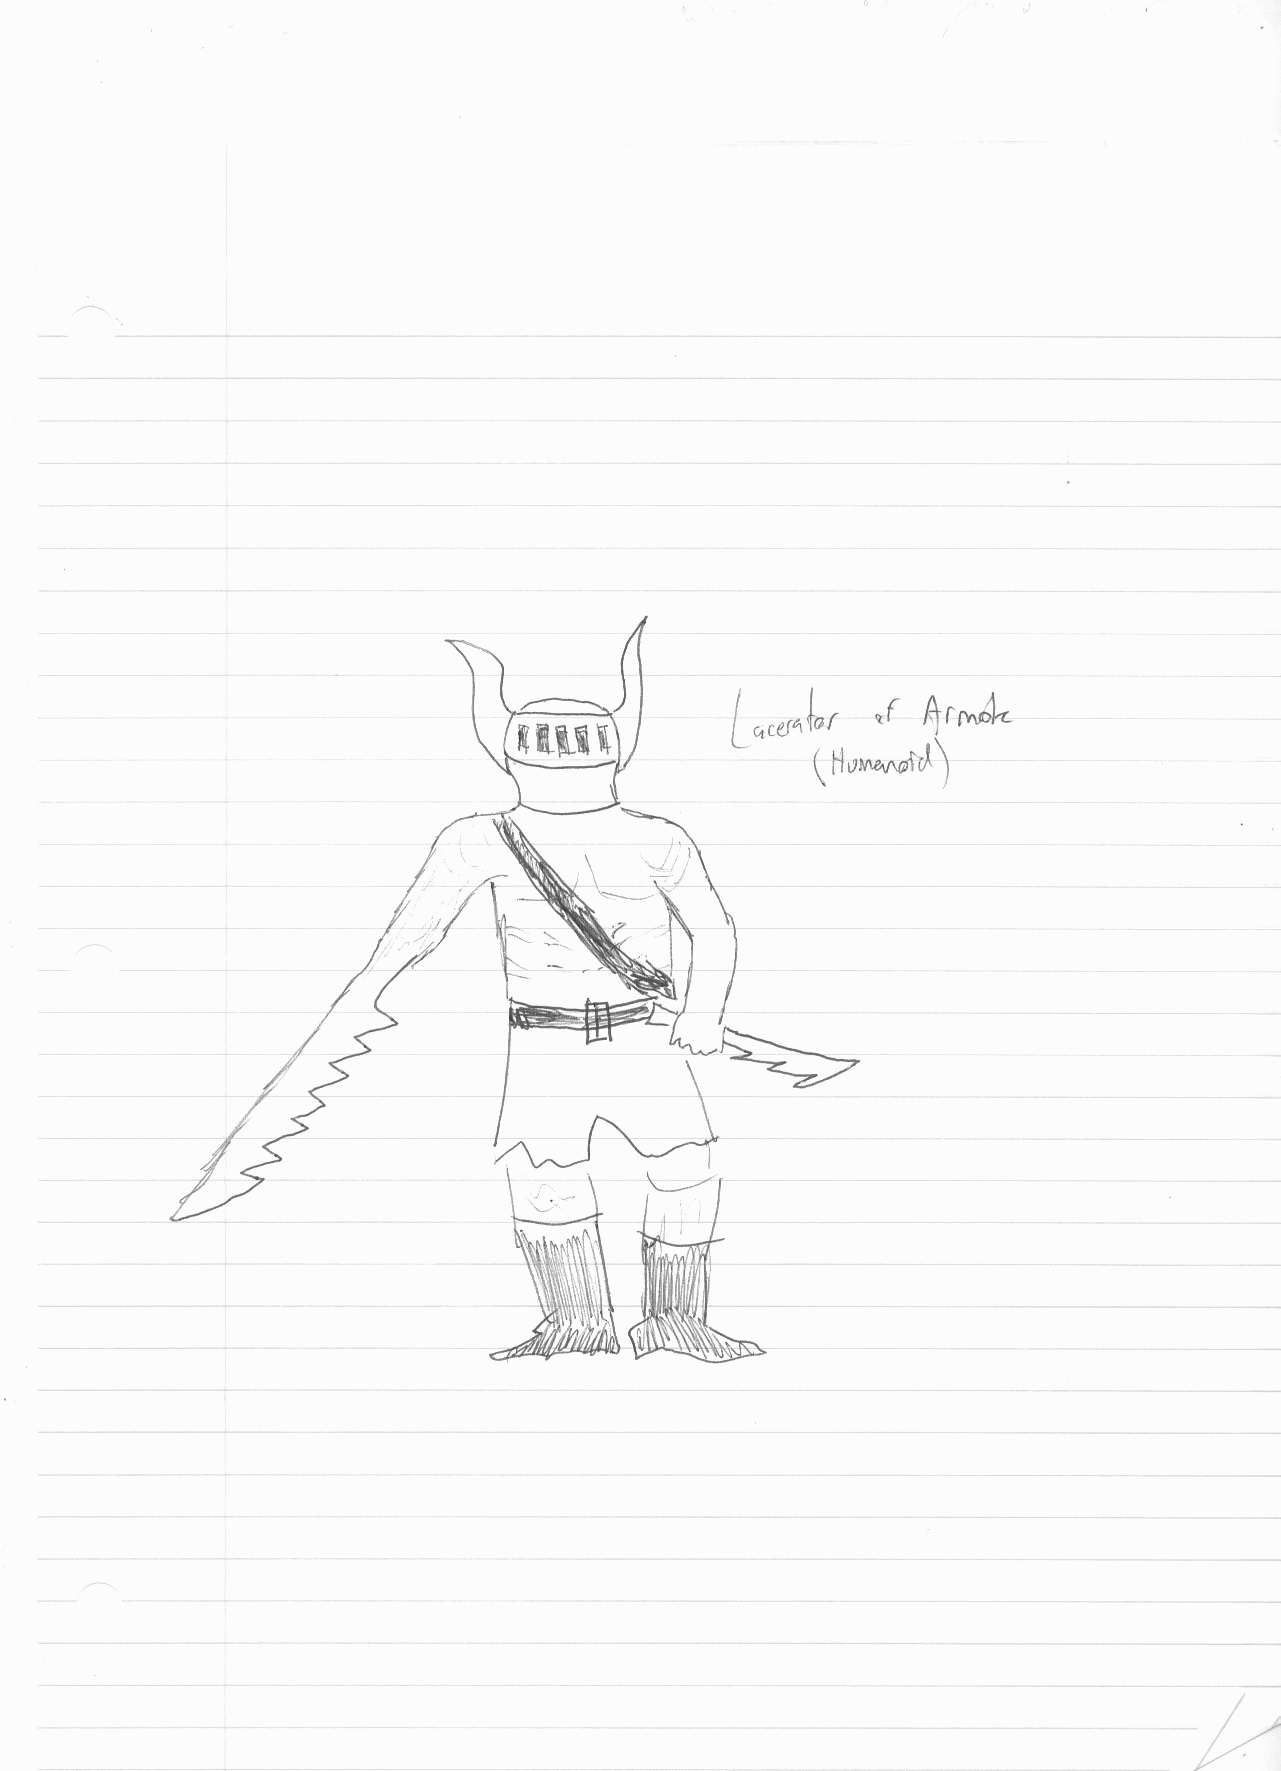 Lacerator of Armok
(Humanoid)